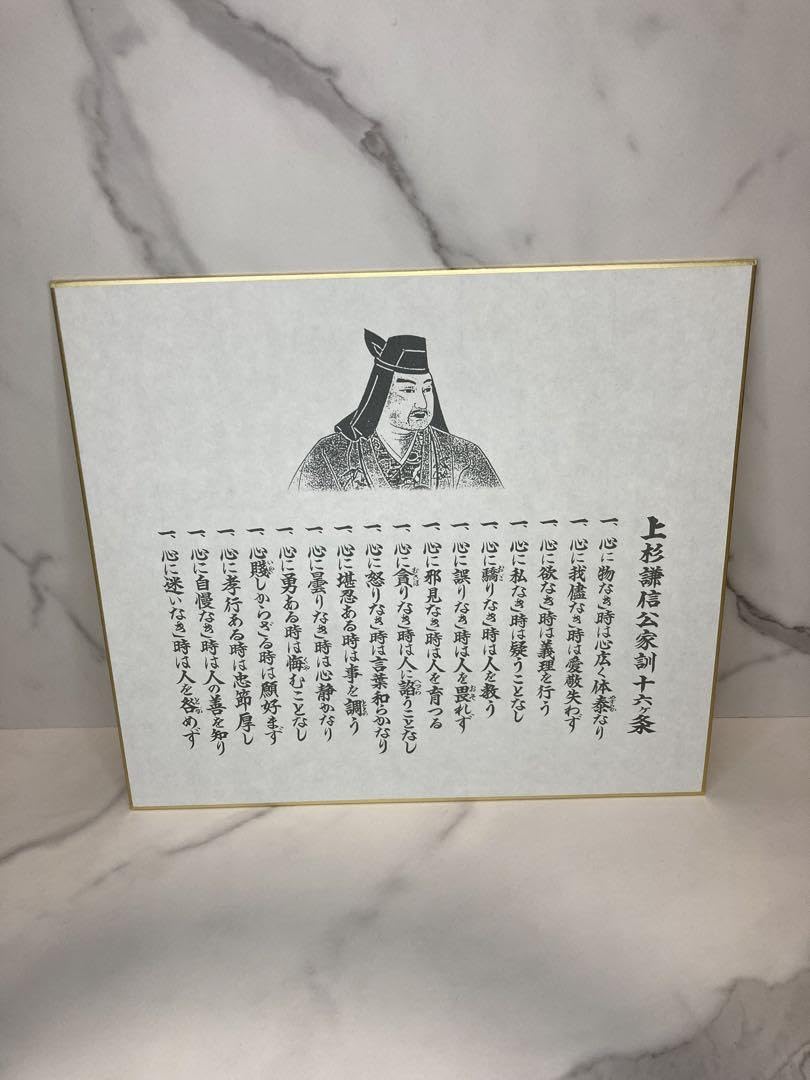 上杉謙信公家訓十六ヶ条
一、心に物なき時は心広く体泰なり
一、心に我儘なき時は愛敬失わず
一、心に欲なき時は義理を行う
一、心に私なき時は疑うことなし
一、心に驕りなき時は人を教う
一、心に誤りなき時は人を畏れず
一、心に邪見なき時は人を育つる
一、心に貪りなき時は人に諂うことなし
一、心に怒りなき時は言葉和らかなり
一、心に堪忍ある時は事を調う
一、心に曇りなき時は心静かなり
一、心に勇ある時は悔むことなし
一、心賤しからざる時は願好まず
一、心に孝行ある時は忠節厚し
一、心に自慢なき時は人の善を知り
一、心に迷いなき時は人を咎めず